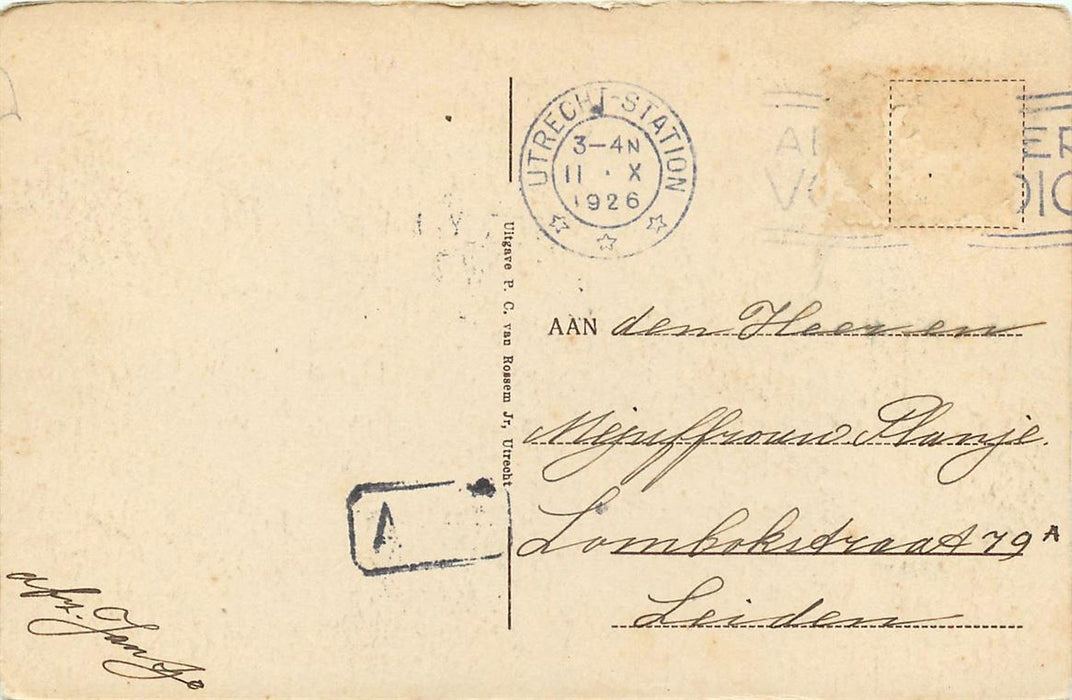 UTRECHT-STATION
3-4N
11 · X
1926
Uitgave P. C. van Rossem Jr, Utrecht
AAN den Heer en
Mejuffrouw Planje.
Lombokstraat 79 A
Leiden
A
afz. Jan